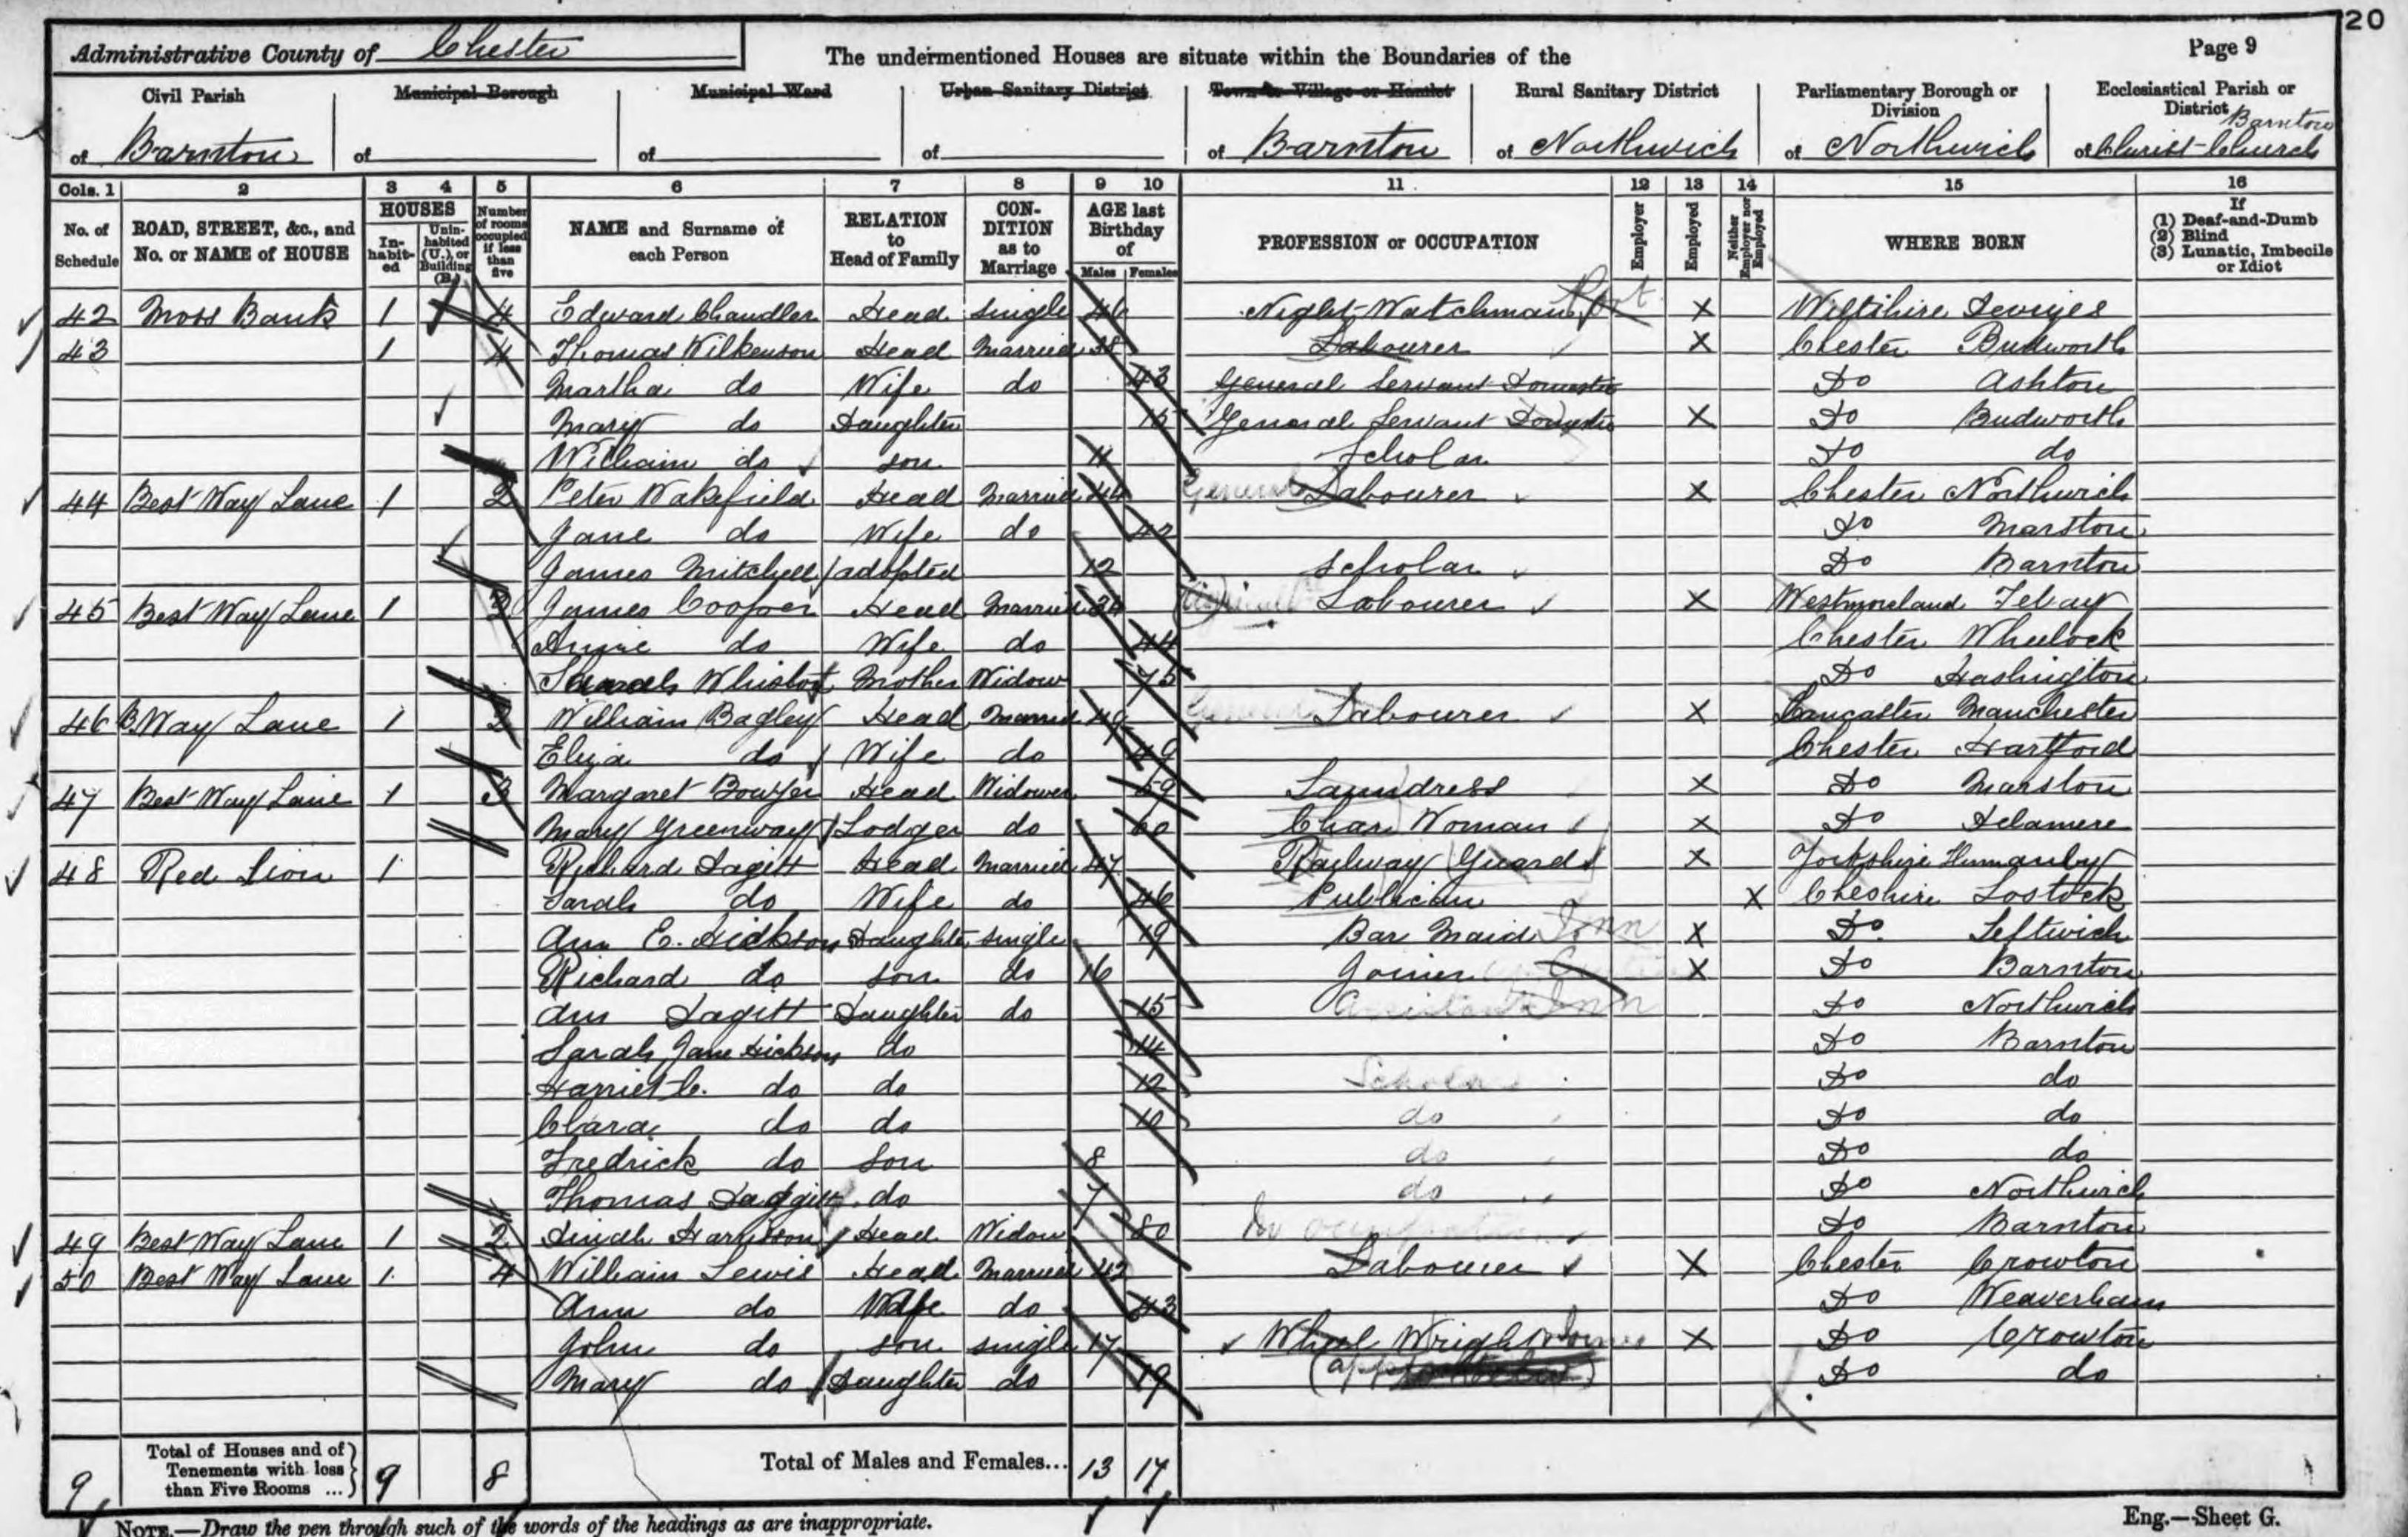 20
Administrative County of Chester
The undermentioned Houses are situate within the Boundaries of the
Page 9
Civil Parish of Barnton
Municipal Borough of
Municipal Ward of
Urban Sanitary District of
Town or Village or Hamlet of Barnton
Rural Sanitary District of Northwich
Parliamentary Borough or Division of Northwich
Ecclesiastical Parish or District of Christ Church Barnton
Cols. 1 2 3 4 5 6 7 8 9 10 11 12 13 14 15 16
No. of Schedule
ROAD, STREET, &c., and No. or NAME of HOUSE
HOUSES
In-habit-ed
Unin-habited (U.), or Building (B.)
Number of rooms occupied if less than five
NAME and Surname of each Person
RELATION to Head of Family
CON-DITION as to Marriage
AGE last Birthday of
Males Females
PROFESSION or OCCUPATION
Employer
Employed
Neither Employer nor Employed
WHERE BORN
If
(1) Deaf-and-Dumb
(2) Blind
(3) Lunatic, Imbecile or Idiot
42 Moss Bank 1 4 Edward Chandler Head single 46 Night Watchman X Wiltshire Devizes
43 1 4 Thomas Wilkenson Head Married 38 Labourer X Chester Budworth
Martha do Wife do 43 General Servant Domestic Do Ashton
Mary do Daughter 15 General Servant Domestic X Do Budworth
William do son 11 Scholar Do do
44 Best Way Lane 1 2 Peter Wakefield Head Married 44 General Labourer X Chester Northwich
Jane do Wife do 42 Do Marston
James Mitchell adopted 12 Scholar Do Barnton
45 Best Way Lane 1 3 James Cooper Head Married Labourer X Westmoreland Tebay
Annie do Wife do 44 Chester Wheelock
Sarah Mother Widow 75 Do Haslington
46 B Way Lane 1 3 William Bagley Head Married 49 General Labourer X Lancaster Manchester
Eliza do Wife do 49 Chester Hartford
47 Best Way Lane 1 3 Margaret Bowyer Head Widower 59 Laundress X Do Marston
Mary Greenway Lodger do 60 Char Woman X Do Delamere
48 Red Lion 1 Richard Dagitt Head Married 47 Railway Guard X Yorkshire Hunmanby
Sarah do Wife do 46 Publican X Cheshire Lostock
Ann E. Hickson Daughter single 19 Bar Maid Inn X Do Leftwich
Richard do son do 16 Joiner X Do Barnton
Ann Dagitt Daughter do 15 Assistant Inn Do Northwich
Sarah Jane Hickson do 14 Do Barnton
Harriet C. do do 12 Scholar Do do
Clara do do 10 do Do do
Fredrick do Son 8 do Do do
Thomas Daggitt do 7 do Do Northwich
49 Best Way Lane 1 2 Dinah Harrison Head Widow 80 No occupation Do Barnton
50 Best Way Lane 1 4 William Lewis Head Married 42 Labourer X Chester Crowton
Ann do Wife do 43 Do Weaverham
John do son single 17 Wheel Wright X Do Crowton
Mary do Daughter do 19 Do do
9 Total of Houses and of Tenements with less than Five Rooms ... 9 8 Total of Males and Females... 13 17
NOTE.—Draw the pen through such of the words of the headings as are inappropriate.
Eng.—Sheet G.